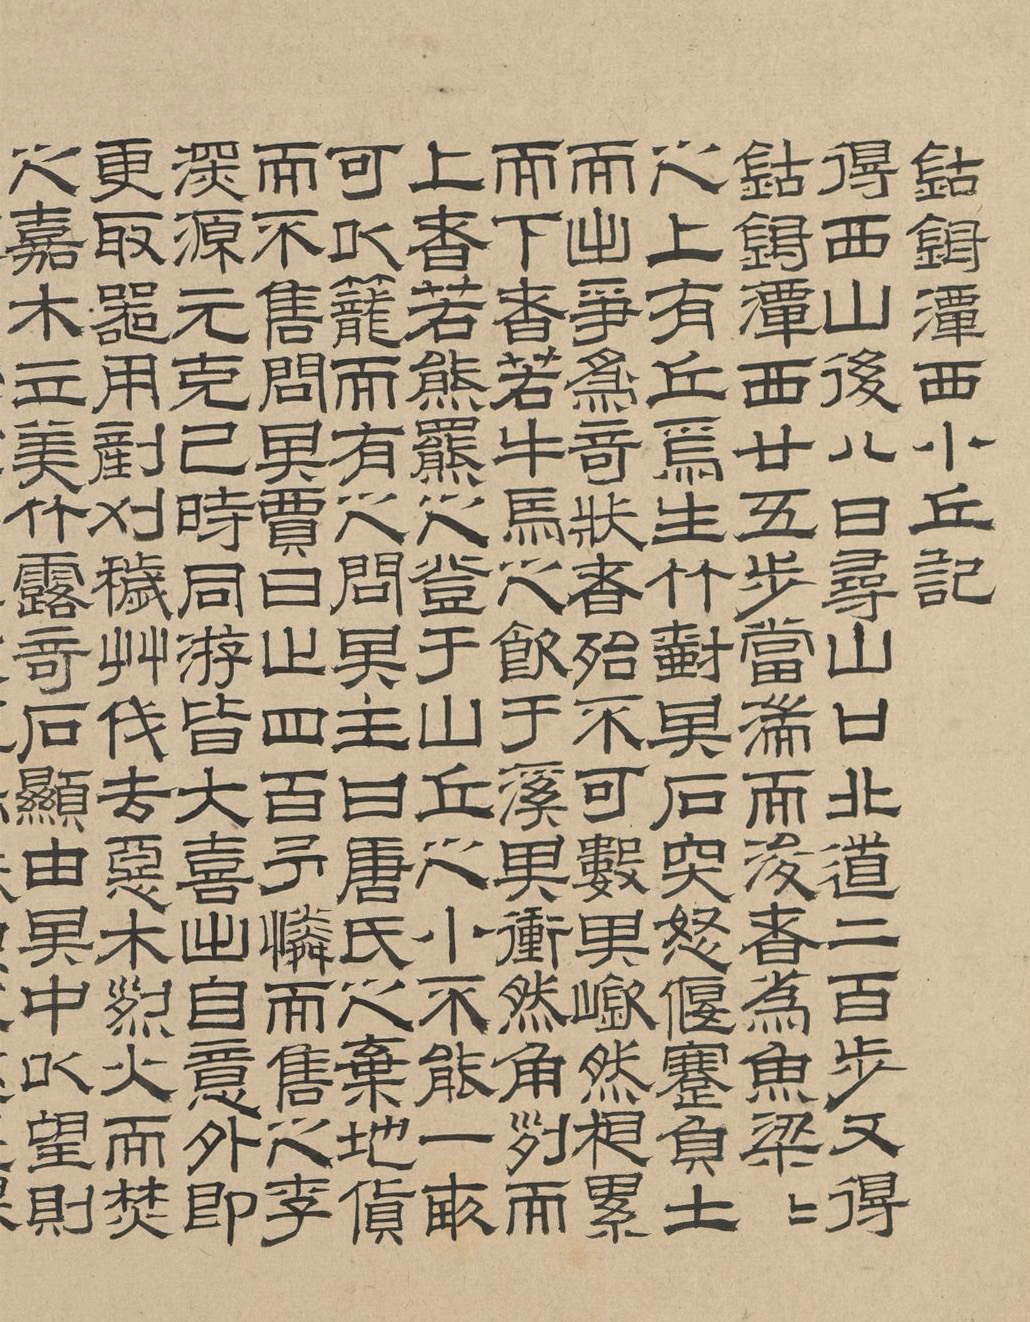 鈷鉧潭西小丘記
得西山後八日尋山口北道二百步又得
鈷鉧潭西廿五步當湍而浚者為魚梁〻
之上有丘焉生竹尌其石突怒偃蹇負土
而出爭為奇狀者殆不可數其嶔然相累
而下者若牛馬之飲于溪其衝然角列而
上者若熊羆之登于山丘之小不能一畝
可以籠而有之問其主曰唐氏之棄地貨
而不售問其賈曰止四百予憐而售之李
深源元克己時同游皆大喜出自意外即
更取器用剷刈穢艸伐去惡木烈火而焚
之嘉木立美竹露奇石顯由其中以望則